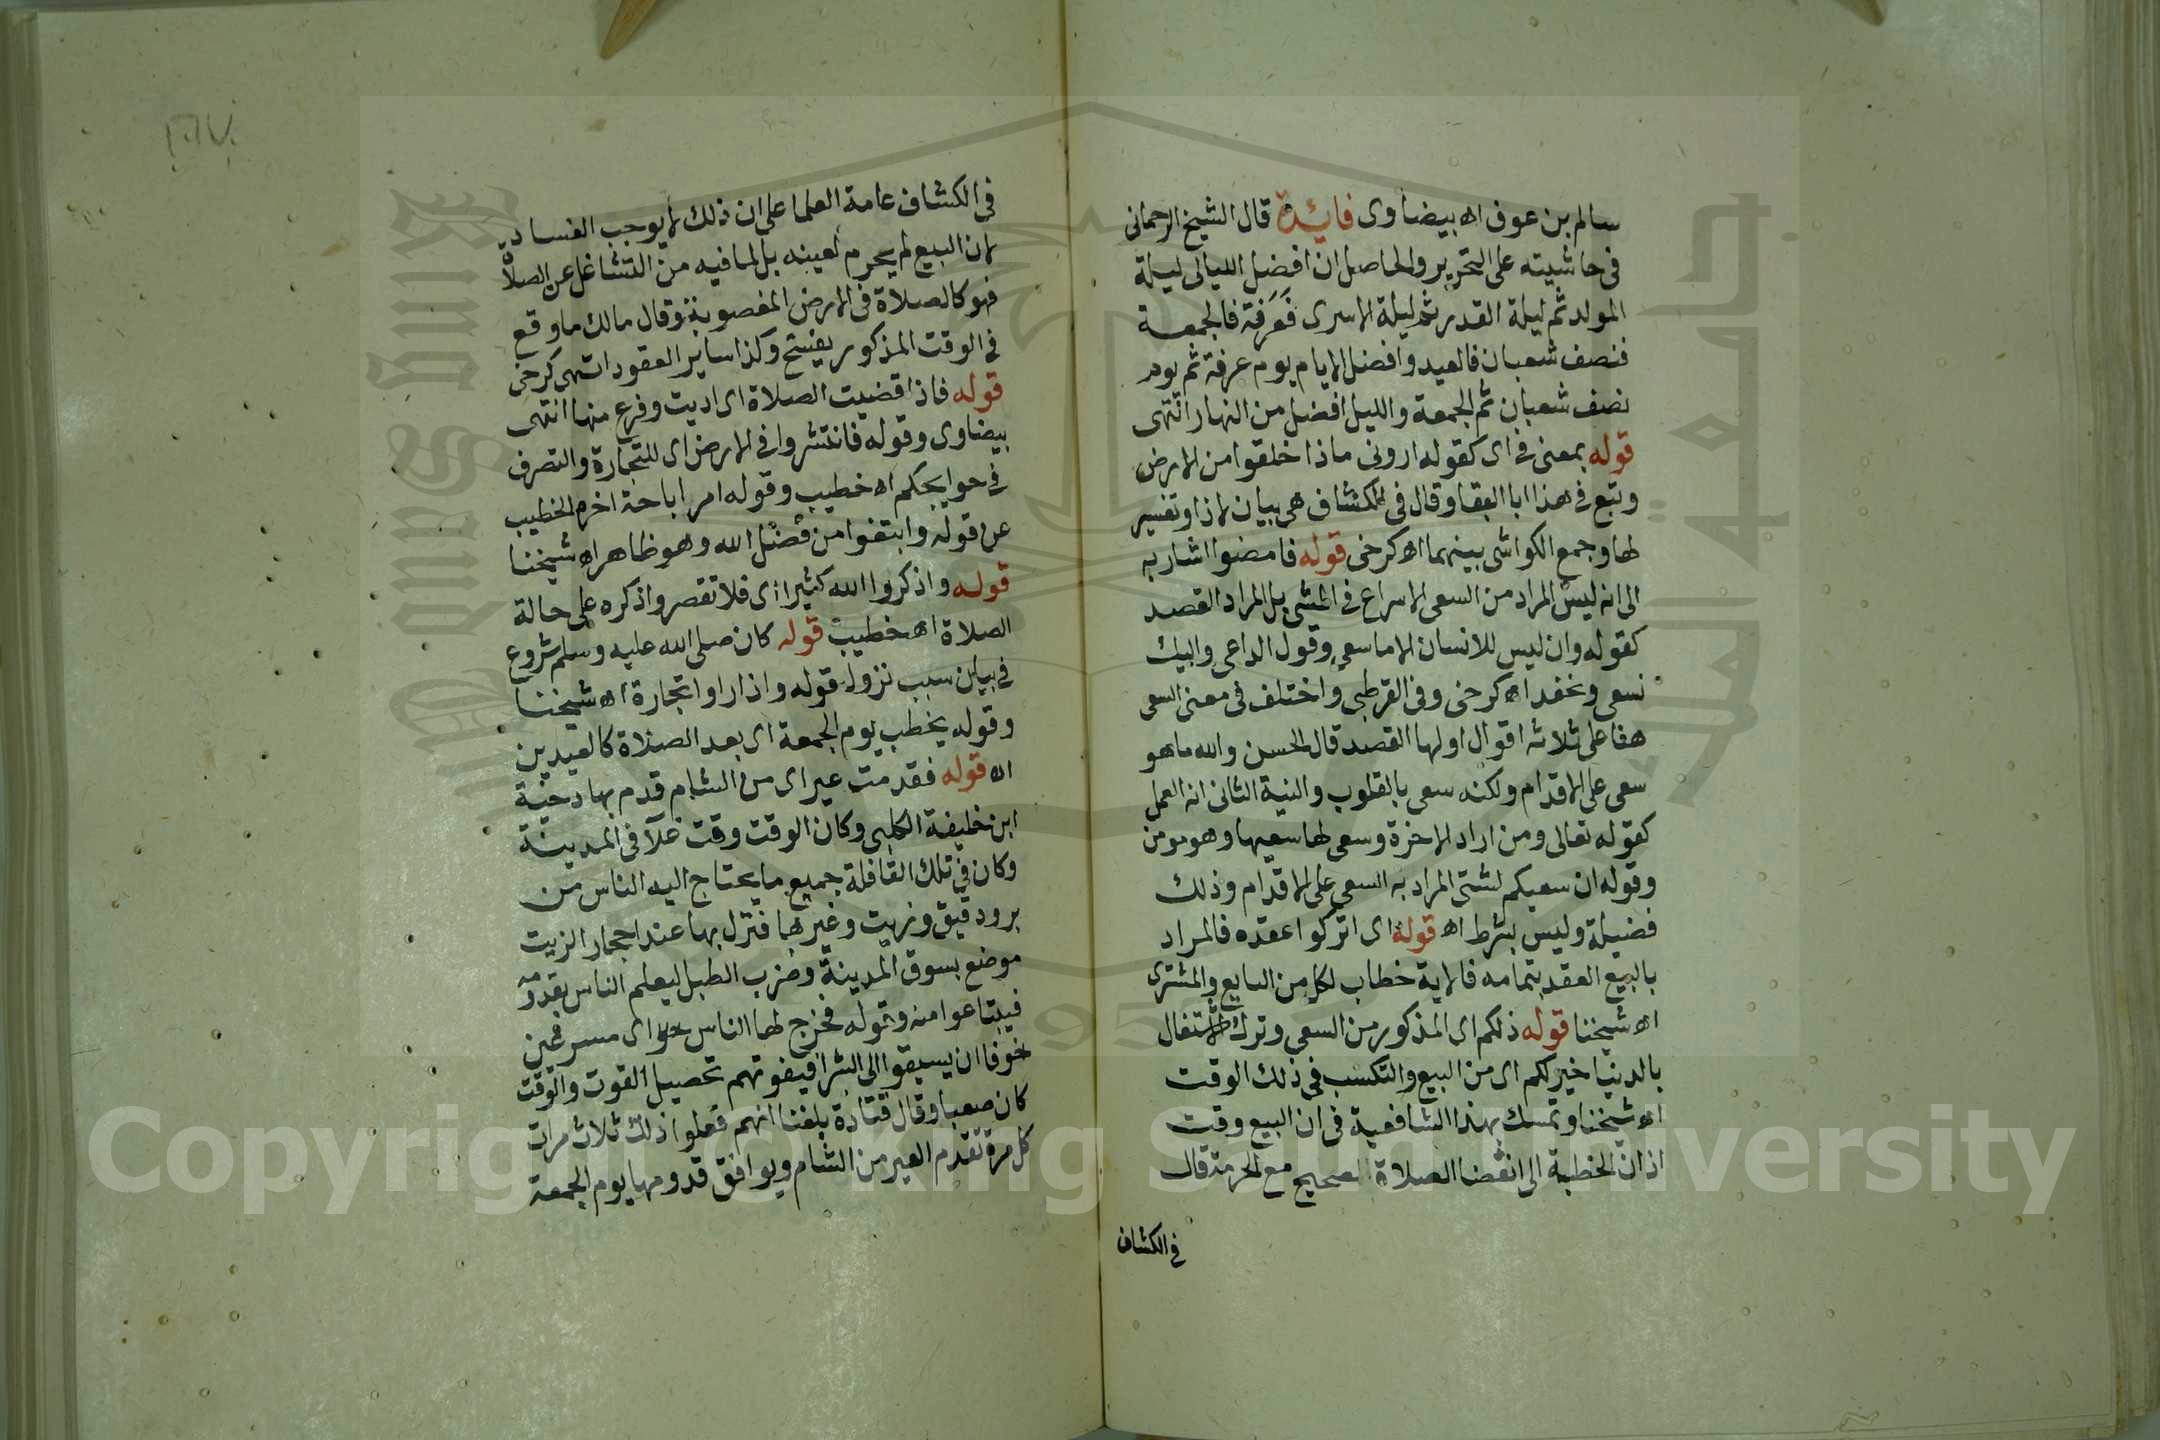 سالم بن عوف اه بيضاوى فايدة قال الشيخ الرحمانى
فى حاشيته على التحرير والحاصل ان افضل الليالى ليلة
المولد ثم ليلة القدر ثم ليلة الاسرى فعرفة فالجمعة
فنصف شعبان فالعيد وافضل الايام يوم عرفة ثم يوم
نصف شعبان ثم الجمعة والليل افضل من النهار انتهى
قوله بمعنى فى اى كقوله ارونى ماذا خلقوا من الارض
وتبع فى هذا ابا البقا وقال فى الكشاف هى بيان لاذا وتفسير
لها وجمع الكواشى بينهما اه كرخى قوله فامضوا اشار به
الى انه ليس المراد من السعى الاسراع فى المشى بل المراد القصد
كقوله وان ليس للانسان الا ما سعى وقول الداعى واليك
نسعى ونحفد اه كرخى وفى القرطبى واختلف فى معنى السعى
هنا على ثلاثه اقوال اولها القصد قال الحسن والله ما هو
سعى على الاقدام ولكنه سعى بالقلوب والنية الثانى انه العمل
كقوله تعالى ومن اراد الاخرة وسعى لها سعيها وهو مومن
وقوله ان سعيكم لشتى المراد به السعى على الاقدام وذلك
فضيلة وليس بشرط اه قوله اى اتركوا عقده فالمراد
بالبيع العقد بتمامه فالاية خطاب لكل من البايع والمشترى
اه شيخنا قوله ذلكم اى المذكور من السعى وترك الاشتغال
بالدنيا خير لكم اى من البيع والتكسب فى ذلك الوقت
اه شيخنا وتمسك بهذا الشافعية فى ان البيع وقت
اذان الخطبة الى انقضا الصلاة صحيح مع الحرمة قال
فى الكشاف
فى الكشاف عامة العلما على ان ذلك لا يوجب الفساد
لان البيع لم يحرم لعينه بل لما فيه من التشاغل عن الصلاة
فهو كالصلاة فى الارض المغصوبة وقال مالك ما وقع
فى الوقت المذكور يفسخ وكذا ساير العقود انتهى كرخى
قوله فاذا قضيت الصلاة اى اديت وفرع منها انتهى
بيضاوى وقوله فانتشروا فى الارض اى للتجارة والتصرف
فى حوايجكم اه خطيب وقوله امر اباحة اخره الخطيب
عن قوله وابتغوا من فضل الله وهو ظاهر اه شيخنا
قوله واذكروا الله كثيرا اى فلا تقصر واذكره على حالة
الصلاة اه خطيب قوله كان صلى الله عليه وسلم شروع
فى بيان سبب نزول قوله واذا راوا تجارة اه شيخنا
وقوله يخطب يوم الجمعة اى بعد الصلاة كالعيدين
اه قوله فقدمت عير اى من الشام قدم بها دحية
ابن خليفة الكلبى وكان الوقت وقت غلا فى المدينة
وكان فى تلك القافلة جميع ما يحتاج اليه الناس من
بر ودقيق وزيت وغيرهما فنزل بها عند احجار الزيت
موضع بسوق المدينة وضرب الطبل ليعلم الناس بقدومه
فيبتاعوا منه وقوله فخرج لها الناس اى مسرعين
خوفا ان يسبقوا الى الشرا فيفوتهم تحصيل القوت والوقت
كان صعبا وقال قتادة بلغنا انهم فعلوا ذلك ثلاث مرات
كل مرة تقدم العير من الشام ويوافق قدومها يوم الجمعة
Copyright © King Saud University